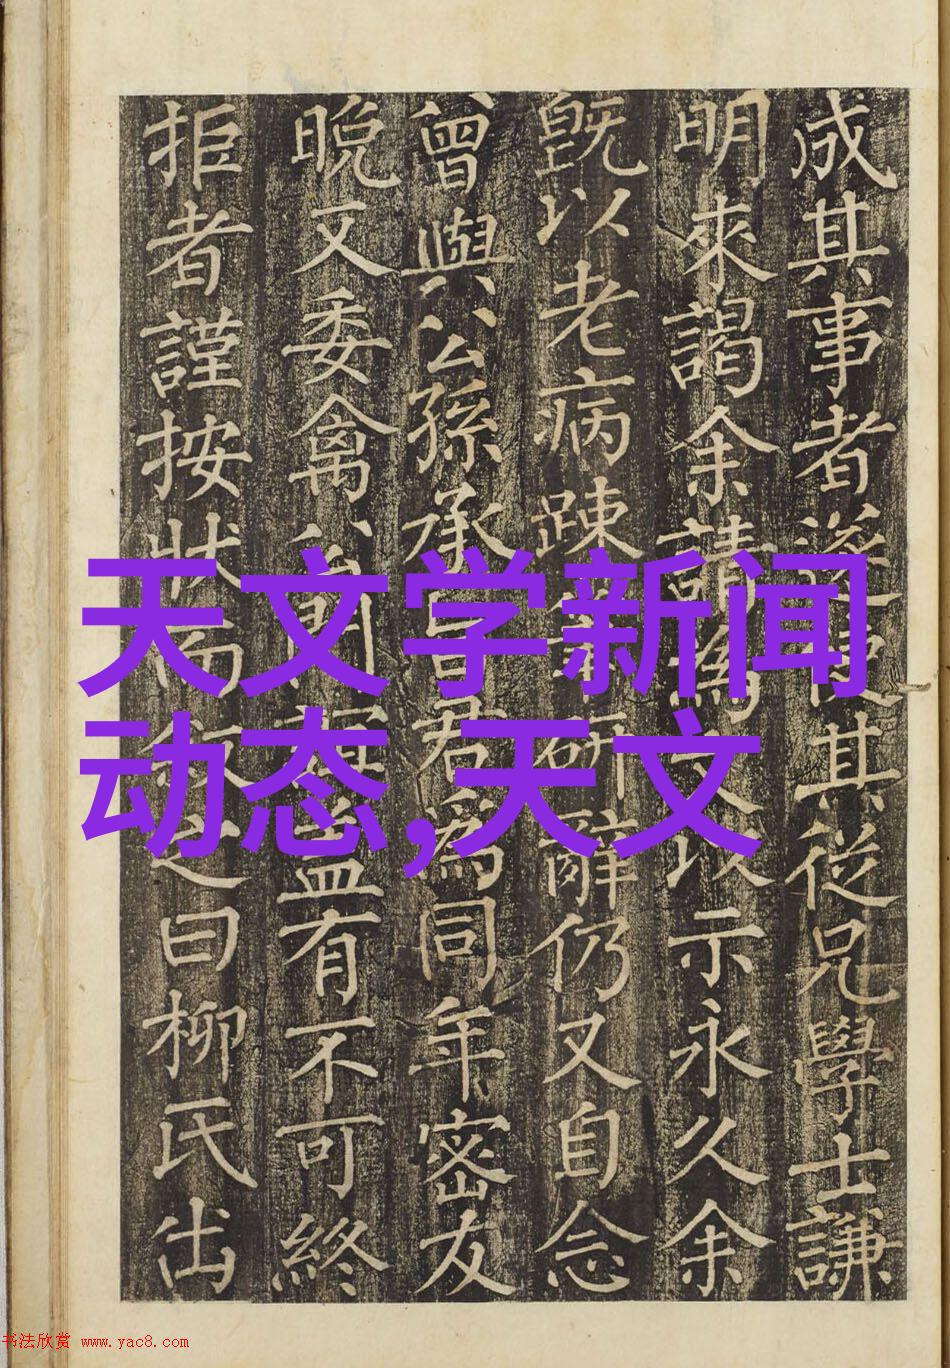 成其事者遂使其從兄學士謙
明來謁余請為文以示永久余
旣以老病踈研辭仍又自念
曾與公孫承旨君為同年密友
晚又委禽公門有不可終
拒者謹按狀而敘之曰柳氏出
天文学新闻
动态,天文
书法欣赏 www.yac8.com